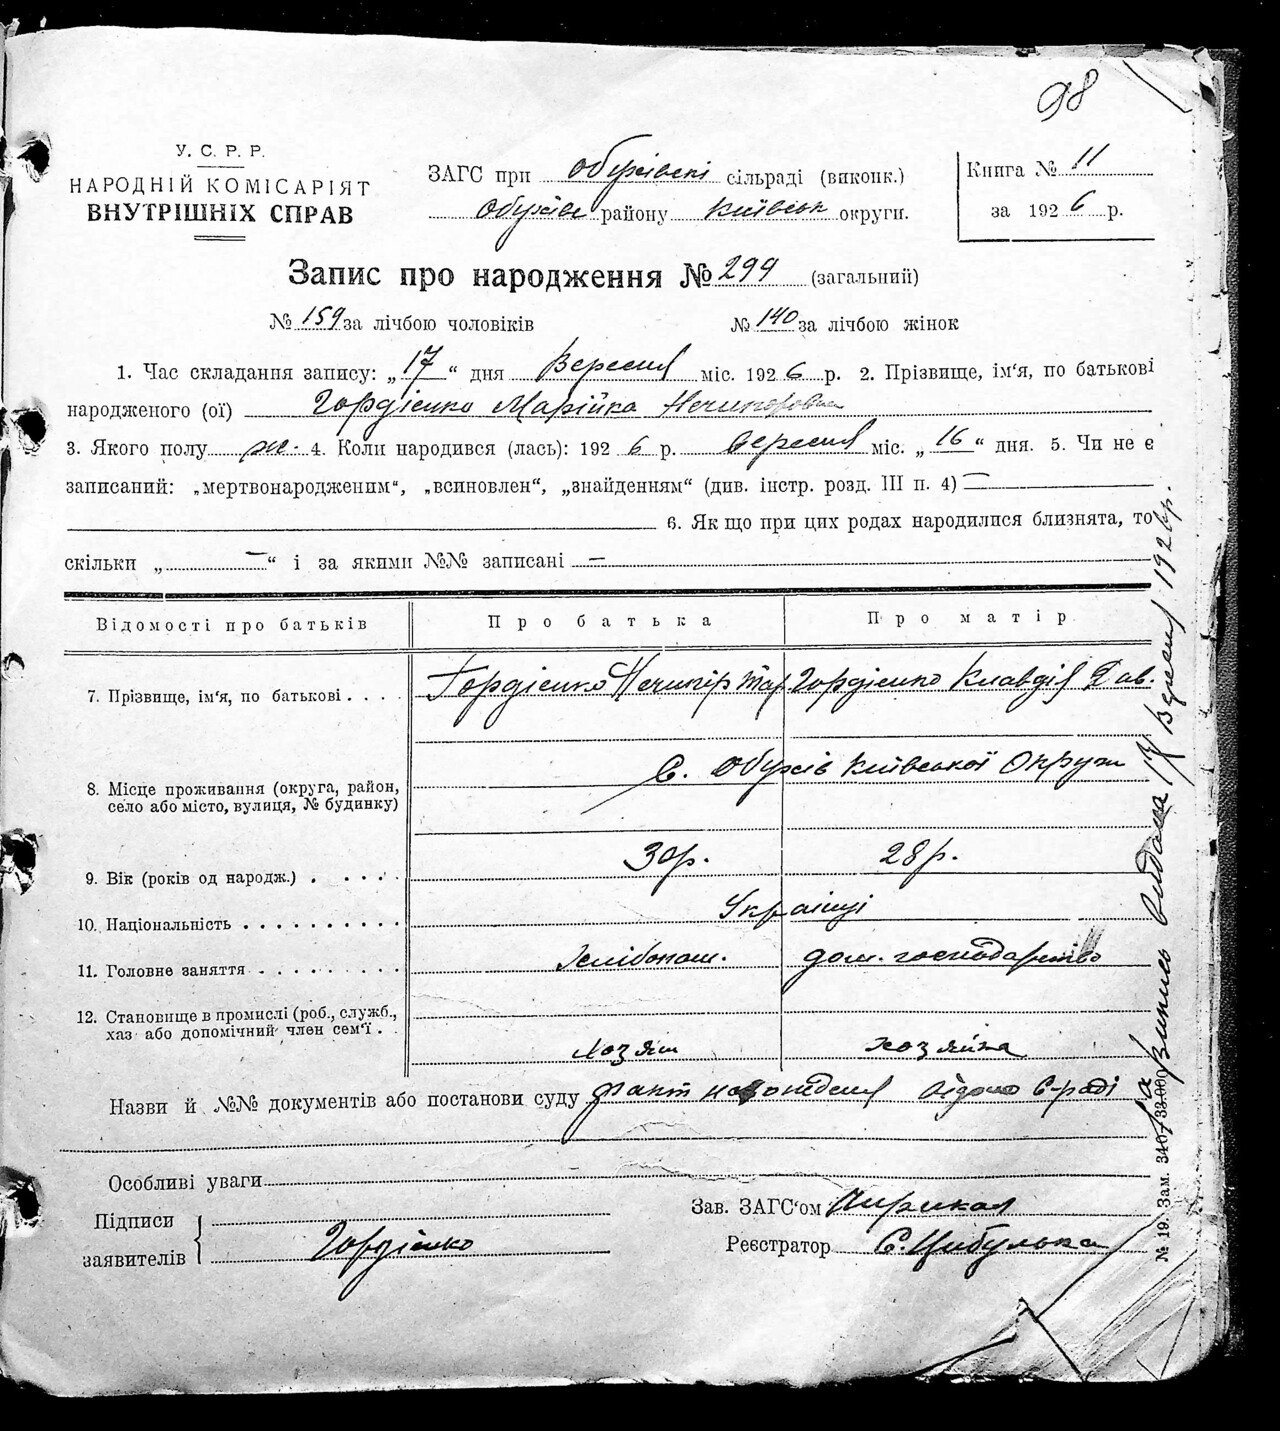 98
У. С. Р. Р.
НАРОДНІЙ КОМІСАРІЯТ
ВНУТРІШНІХ СПРАВ
ЗАГС при Обухівські сільраді (виконк.)
Обухівс району Київськ округи.
Книга № 11
за 1926 р.
Запис про народження № 299 (загальний)
№ 159 за лічбою чоловіків № 140 за лічбою жінок
1. Час складання запису: „17“ дня Вересня міс. 1926 р. 2. Прізвище, ім'я, по батькові
народженого (ої) Гордієнко Марійка Нечипоровна
3. Якого полу ж. 4. Коли народився (лась): 1926 р. вересня міс. „16“ дня. 5. Чи не є
записаний: „мертвонародженим“, „всиновлен“, „знайденням“ (див. інстр. розд. III п. 4) —
6. Як що при цих родах народилися близнята, то
скільки „—“ і за якими №№ записані —
Відомості про батьків Про батька Про матір
7. Прізвище, ім'я, по батькові . . . . Гордієнко Нечипір Тар. Гордієнко Клавдія Дав.
8. Місце проживання (округа, район, село або місто, вулиця, № будинку) С. Обухів Київської Округи
9. Вік (років од народж.) . . . . . 30р. 28р.
10. Національність . . . . . . . . . . Українці
11. Головне заняття . . . . . . . . . Хлібопаш. дом. господарство
12. Становище в промислі (роб., служб.,
хаз або допомічний член сем'ї . . хозяін хозяйка
Назви й №№ документів або постанови суду факт народження відомо С-раді
Особливі уваги
Підписи
заявителів Гордієнко
Зав. ЗАГС'ом
Реєстратор С. Цибулька
№ 19. Зам. 3407-33.000
Випись видана 17/ Вересня 1926р.